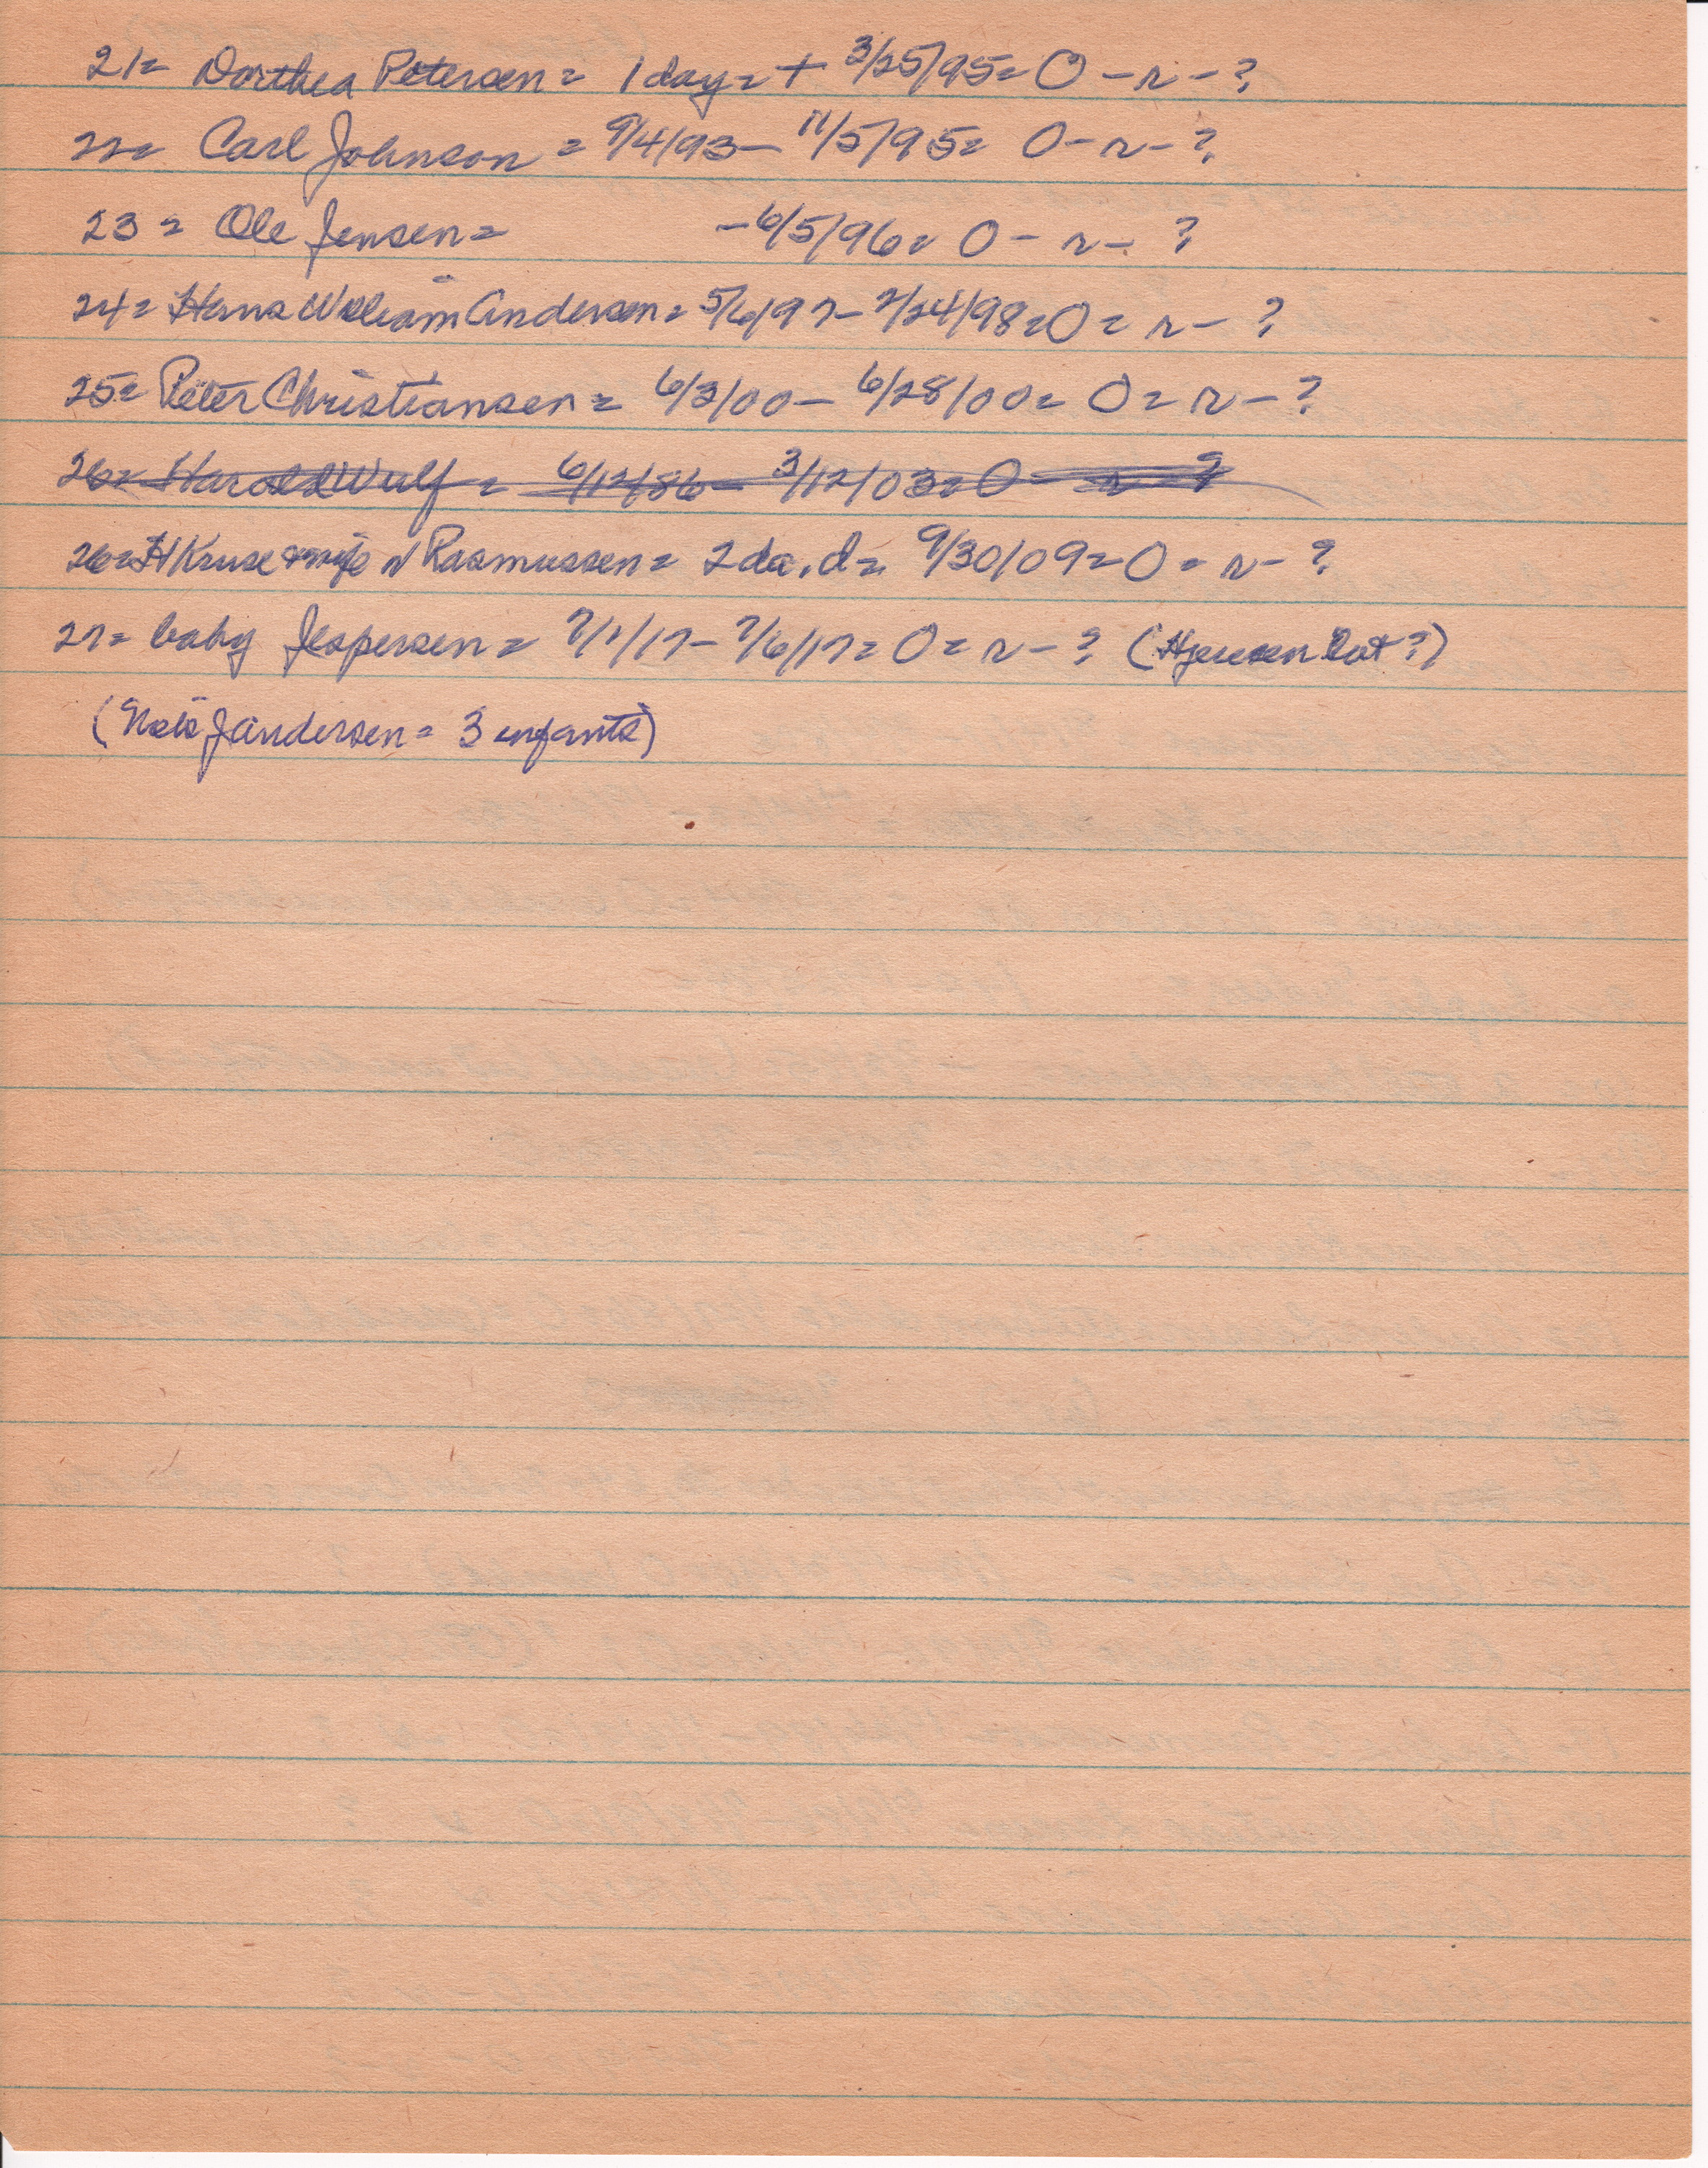 21= Dorthea Petersen = 1 day = + 3/25/95 = O - r - ?
22= Carl Johnson = 9/4/93 - 11/5/95 = O - r - ?
23 = Ole Jensen = - 6/5/96 = O - r - ?
24 = Hans William Andersen = 5/6/97 - 2/24/98 = O = r - ?
25 = Peter Christiansen = 6/3/00 - 6/28/00 = O = r - ?
26 = Harold Wulf = 6/12/86 - 3/12/03 = O - r - ?
26 = H Kruse & wife N Rasmussen = 2 da. d = 9/30/09 = O = r - ?
27 = baby Jespersen = 7/1/17 - 7/6/17 = O = r - ? (H Jensen Lot ?)
(Nels J Andersen = 3 infants)